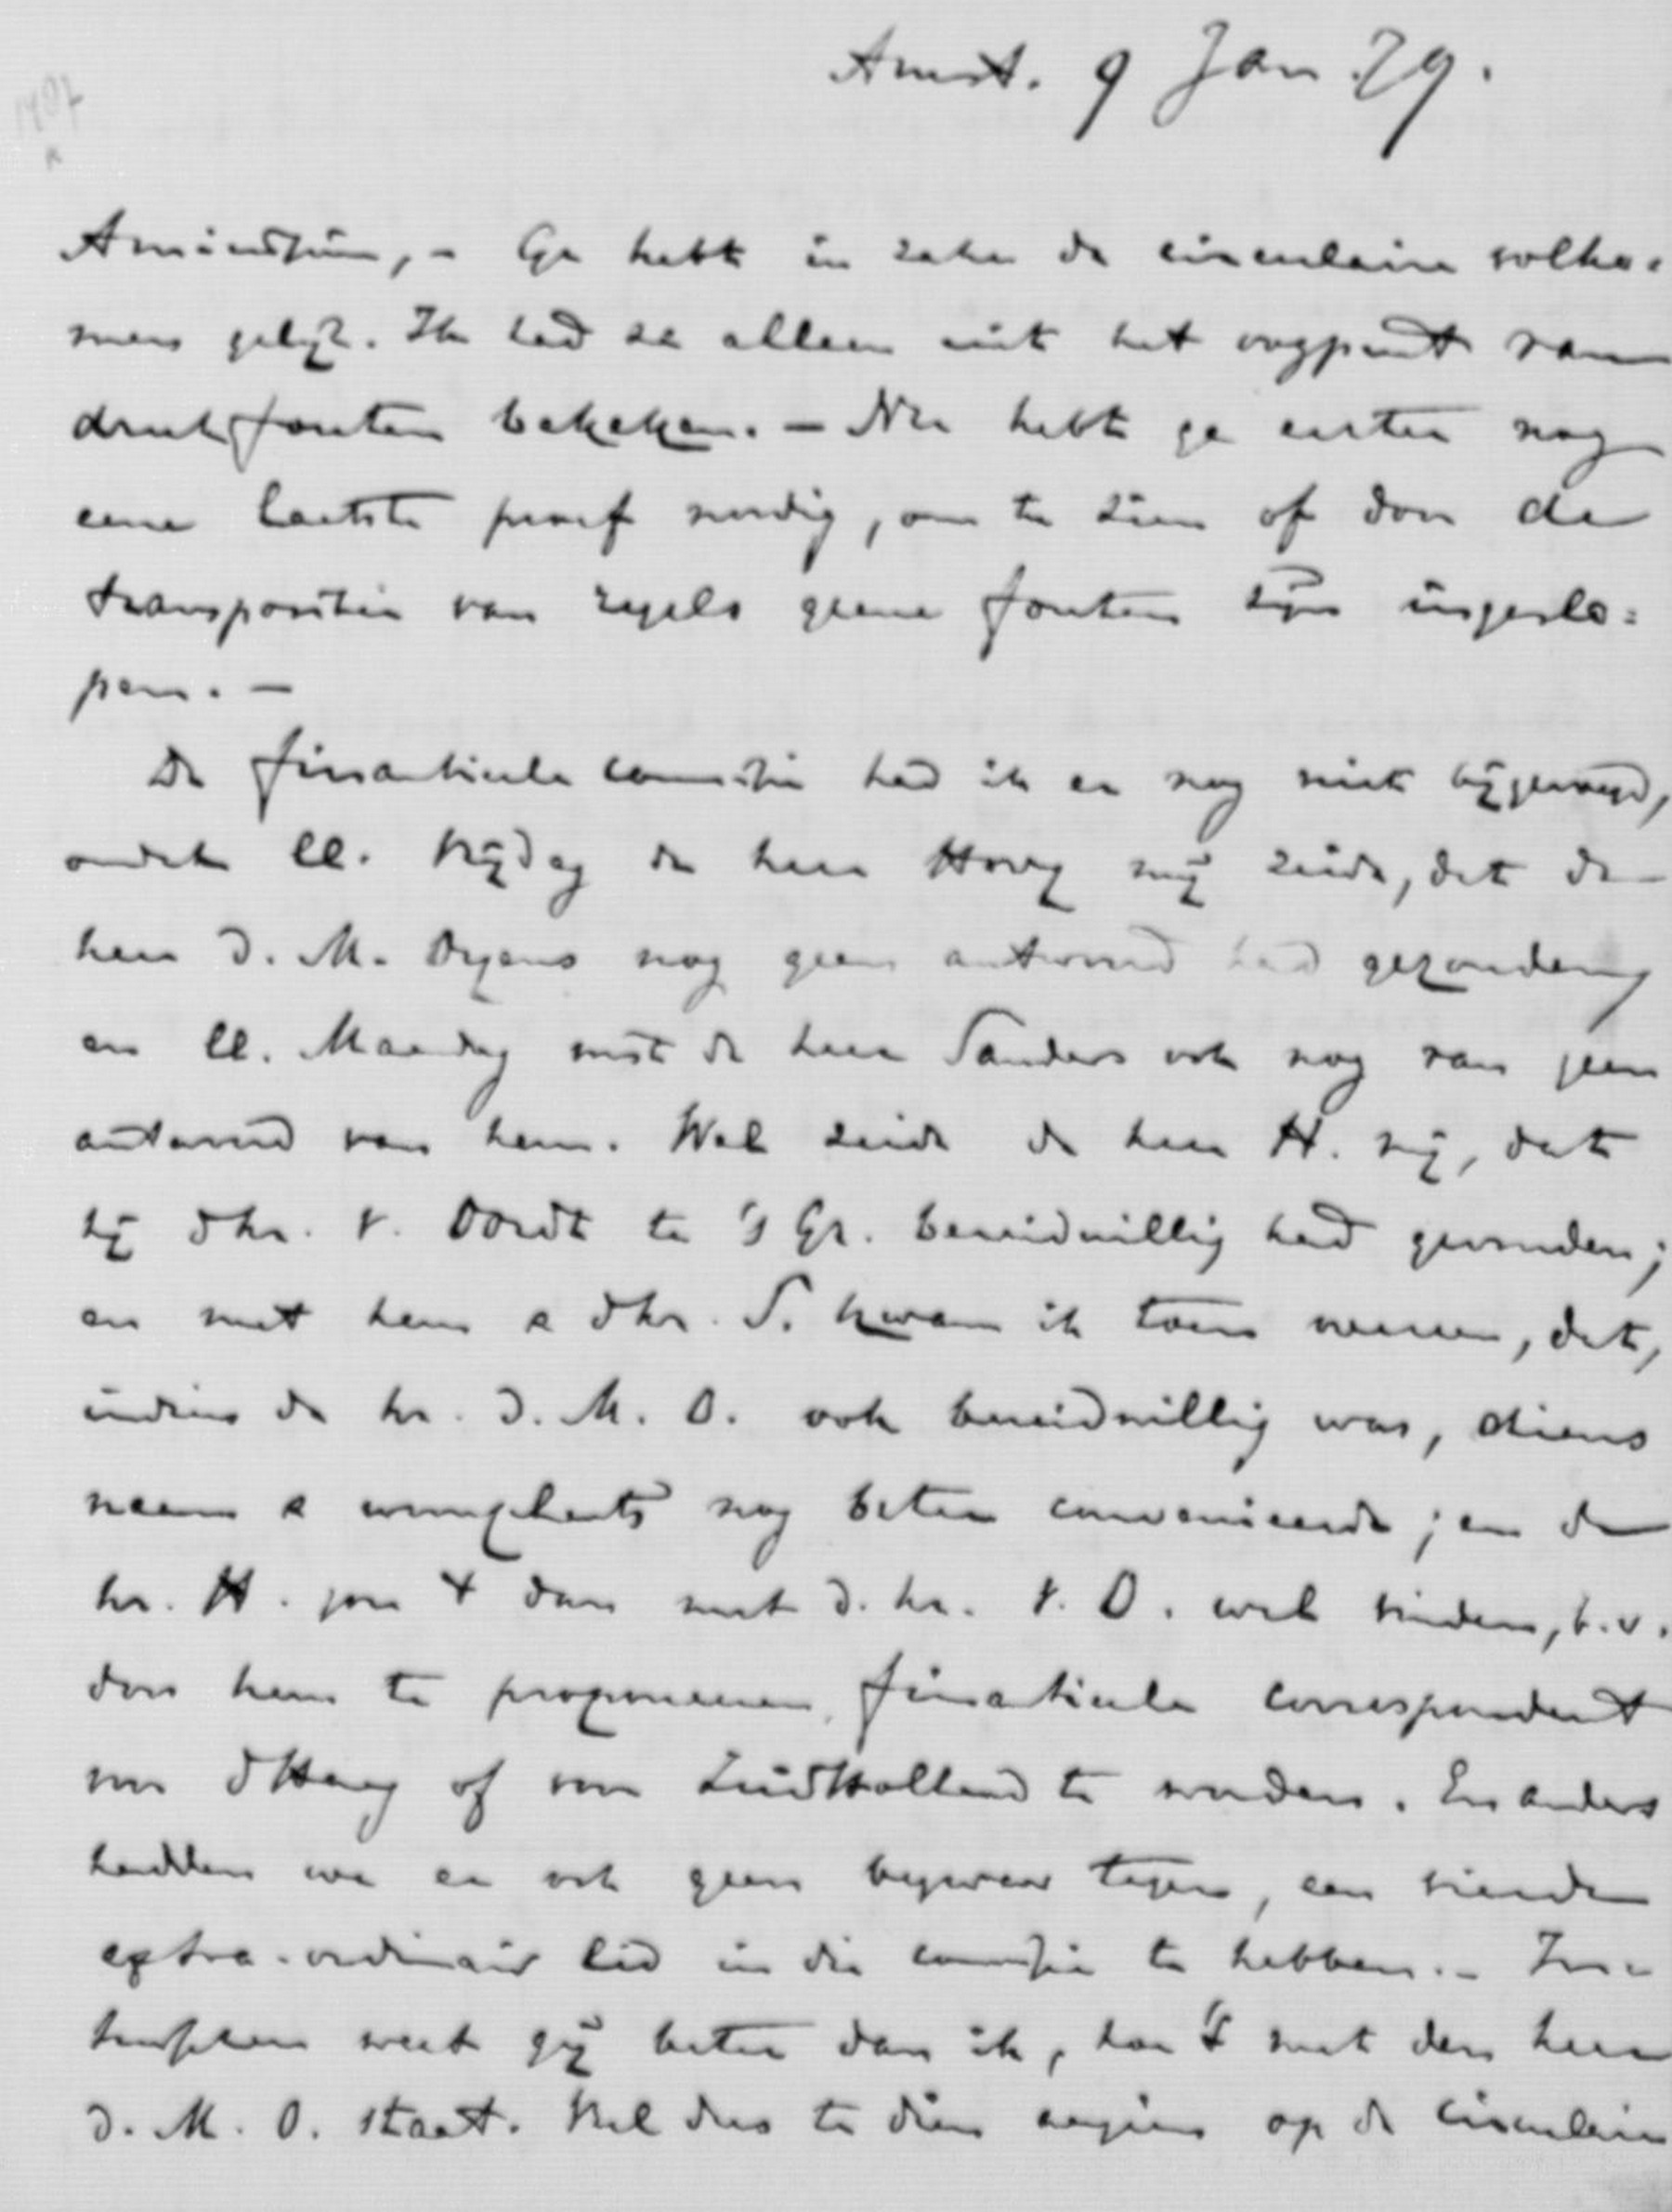 Amst. 9 Jan. 79.
Amicissime, - Ge hebt in zake de circulaire volko-
men gelijk. Ik had ze alleen uit het oogpunt van
drukfouten bekeken. - Nu hebt ge echter nog
eene laatste proef noodig, om te zien of door de
transpositie van regels geene fouten zijn ingeslo=
pen. -
De finantieele commissie had ik er nog niet bijgevoegd,
omdat ll. Vrijdag de heer Hovy mij zeide, dat de
heer d. M. Oyens nog geen antwoord had gezonden,
en ll. Maandag wist de heer Sanders ook nog van geen
antwoord van hem. Wel zeide de heer H. mij, dat
hij dhr. v. Oordt te 's Gr. bereidwillig had gevonden;
en met hem & dhr. S. kwam ik toen overeen, dat,
indien de hr. d. M. O. ook bereidwillig was, diens
naam & woonplaats nog beter convenieerde; en de
hr. H. zou 't dan met d. hr. v. O. wel vinden, b.v.
door hem te proponeeren, finantieele correspondent
voor d Haag of voor ZuidHolland te worden. En anders
hadden we er ook geen bezwaar tegen, een vierde
extra-ordinair lid in die commissie te hebben. - In-
tusschen weet gij beter dan ik, hoe 't met den heer
d. M. O. staat. Vul dus te dien aanzien op de circulaire